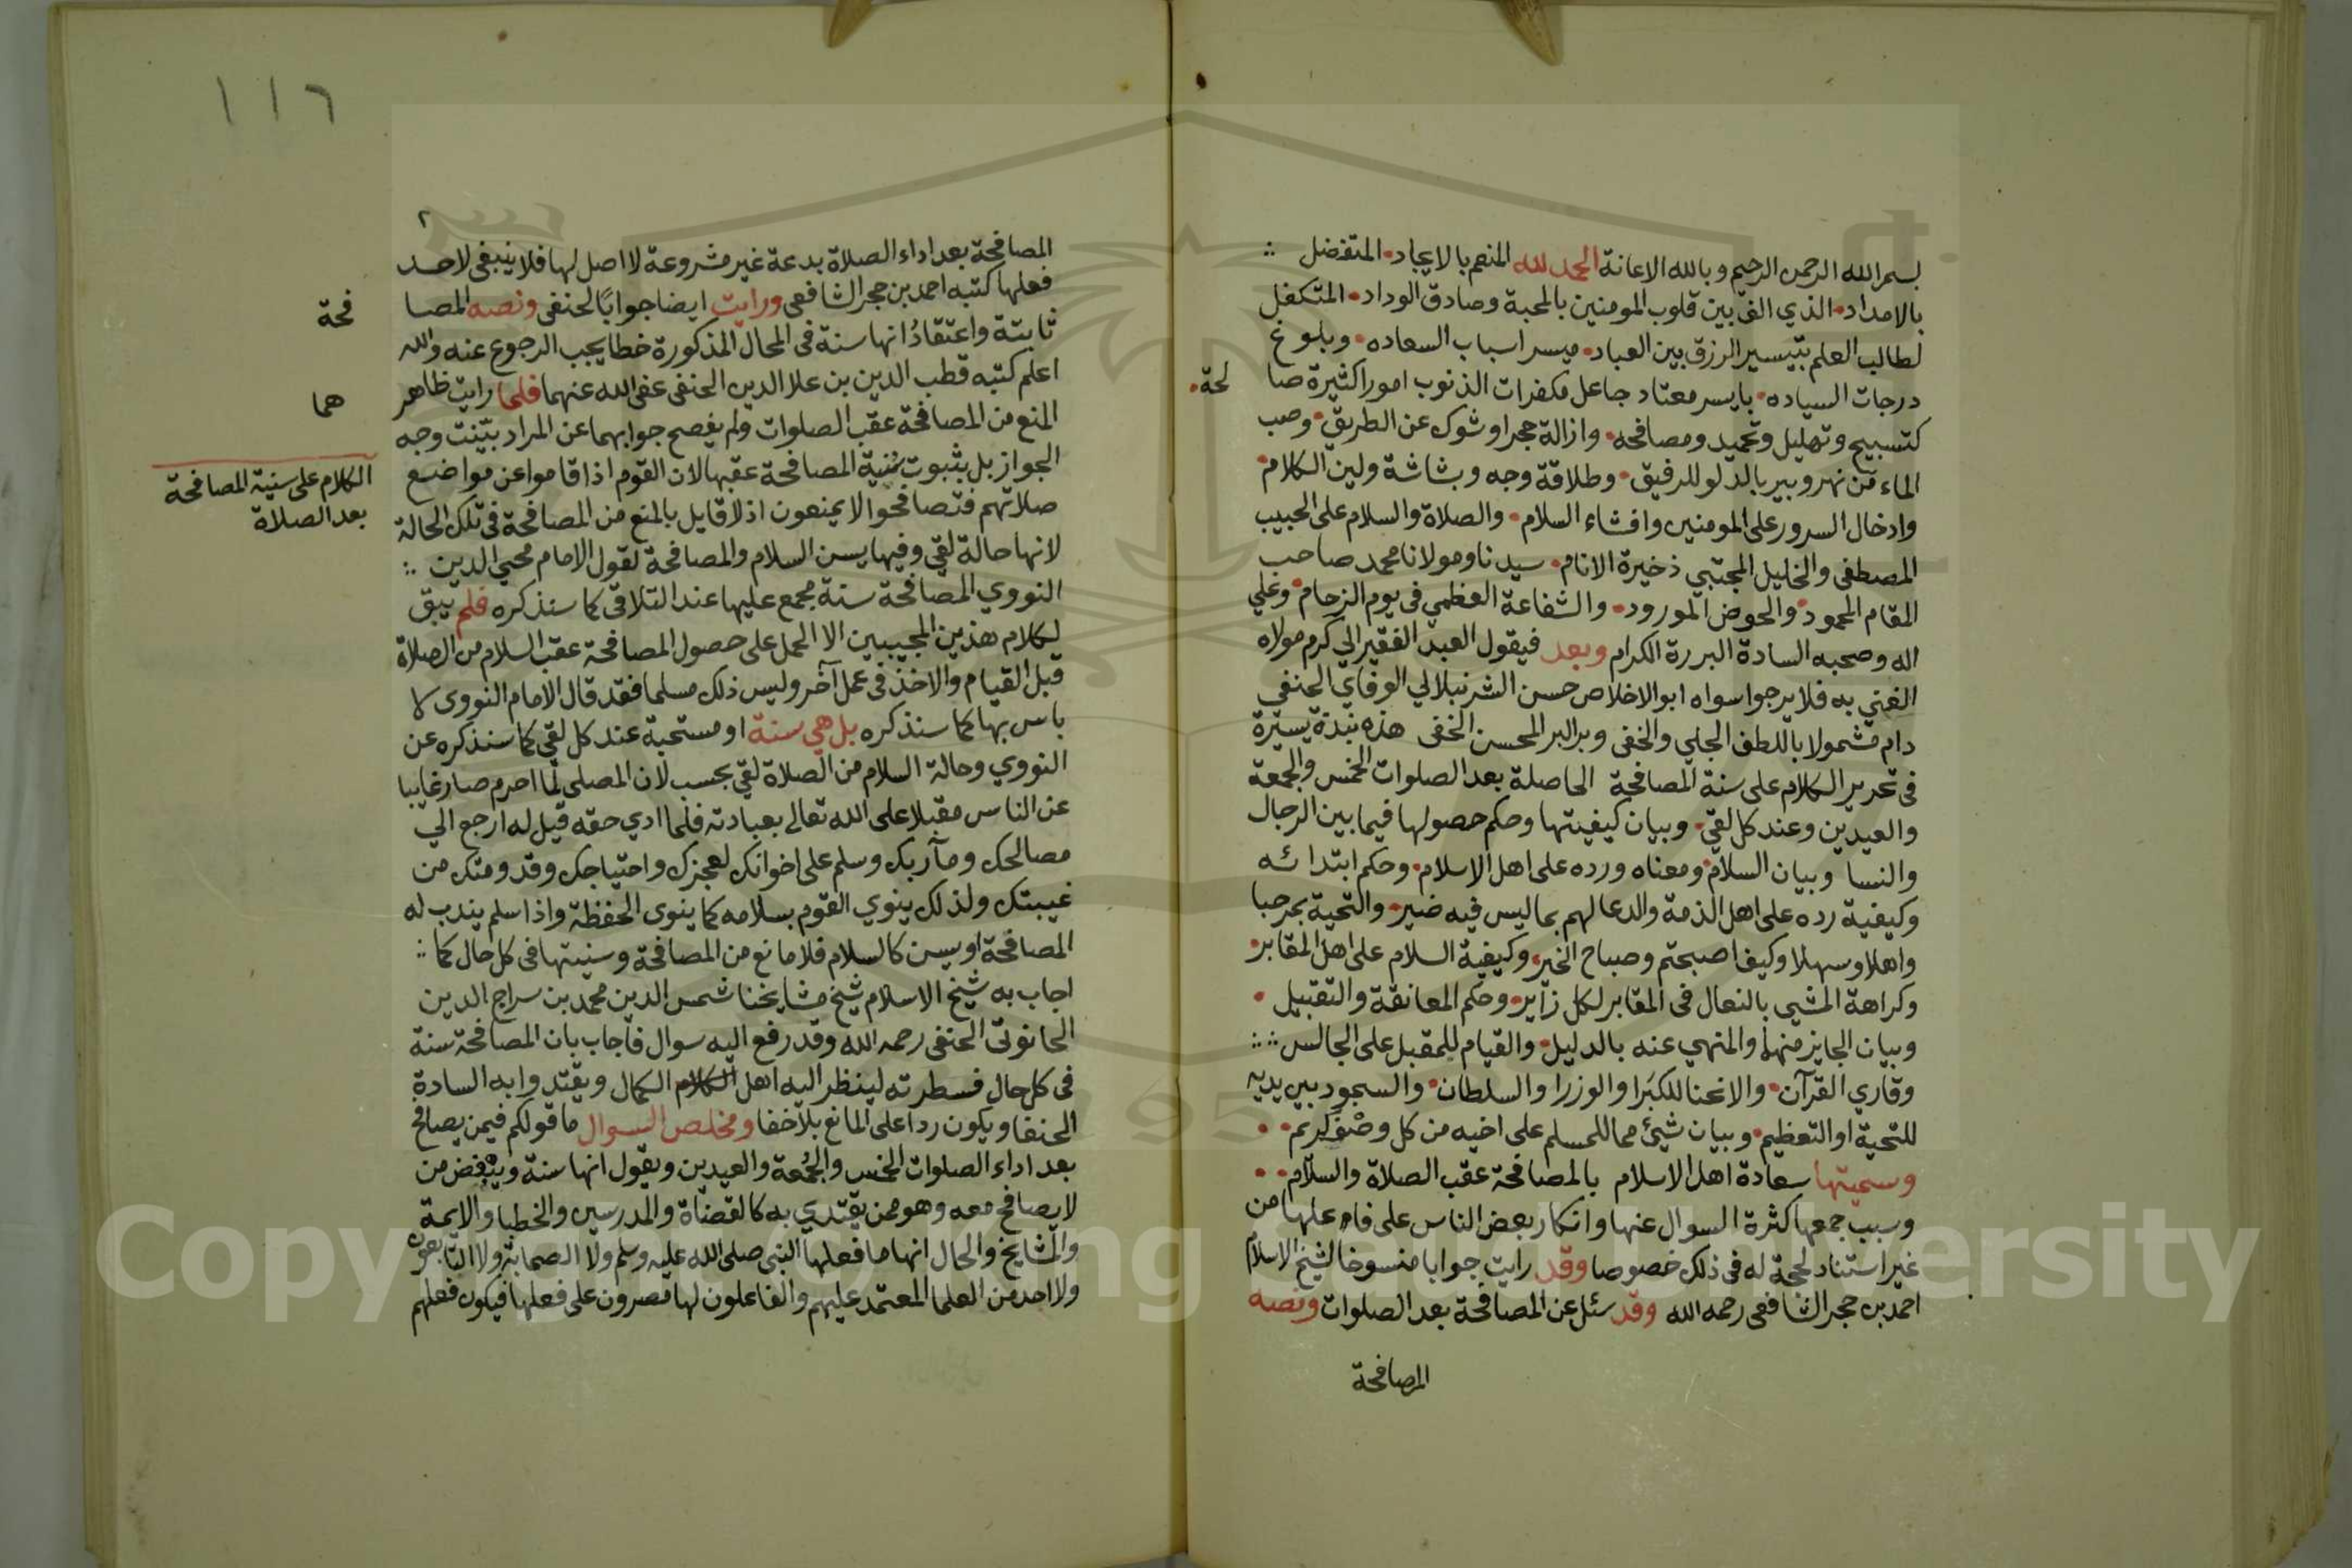 بسم الله الرحمن الرحيم وبالله الاعانة الحمد لله المنعم بالايجاد المتفضل
بالامداد الذي الف بين قلوب المومنين بالمحبة وصادق الوداد المتكفل
لطالب العلم بتيسير الرزق بين العباد ميسر اسباب السعاده وبلوغ
درجات السياده بايسر معتاد جاعل مكفرات الذنوب امورا كثيرة صا
لحة
كتسبيح وتهليل وتحميد ومصافحه وازالة حجر او شوك عن الطريق وصب
الماء من نهر وبير بالدلو للرفيق وطلاقة وجه وبشاشة ولين الكلام
وادخال السرور على المومنين وافشاء السلام والصلاة والسلام على الحبيب
المصطفى والخليل المجتبي ذخيرة الانام سيدنا ومولانا محمد صاحب
المقام المحمود والحوض المورود والشفاعة العظمي في يوم الزحام وعلي
اله وصحبه السادة البررة الكرام وبعد فيقول العبد الفقير الي كرم مولاه
الغني به فلا يرجوا سواه ابو الاخلاص حسن الشرنبلالي الوفاي الحنفي
دام مشمولا باللطف الجلي والخفي وبر البر المحسن الحفى هذه نبذة يسيرة
في تحرير الكلام على سنة المصافحة الحاصلة بعد الصلوات الخمس والجمعة
والعيدين وعند كل لقي وبيان كيفيتها وحكم حصولها فيما بين الرجال
والنسا وبيان السلام ومعناه ورده على اهل الاسلام وحكم ابتدائه
وكيفية رده على اهل الذمة والدعا لهم بما ليس فيه ضير والتحية بمرحبا
واهلا وسهلا وكيف اصبحتم وصباح الخير وكيفية السلام على اهل المقابر
وكراهة المشي بالنعال في المقابر لكل زاير وحكم المعانقة والتقبيل
وبيان الجايز منهما والمنهي عنه بالدليل والقيام للمقبل على الجالس
وقاري القرآن والانحنا للكبرا والوزرا والسلطان والسجود بين يديه
للتحية او التعظيم وبيان شيئ مما للمسلم على اخيه من كل وصف كريم
وسميتها سعادة اهل الاسلام بالمصافحة عقب الصلاة والسلام
وسبب جمعها كثرة السوال عنها وانكار بعض الناس على فاعلها من
غير استناد لحجة له في ذلك خصوصا وقد رايت جوابا منسوخا لشيخ الاسلام
احمد بن حجر الشافعى رحمه الله وقد سئل عن المصافحة بعد الصلوات ونصه
المصافحة
١١٦
٢
المصافحة بعد اداء الصلاة بدعة غير مشروعة لا اصل لها فلا ينبغى لاحد
فعلها كتبه احمد بن حجر الشافعى ورايت ايضا جوابا لحنفى ونصه المصا
فحة
ثابتة واعتقاد انها سنة في المحال المذكورة خطا يجب الرجوع عنه والله
اعلم كتبه قطب الدين بن علا الدين الحنفى عفى الله عنهما فلما رايت ظاهر
هما
المنع من المصافحة عقب الصلوات ولم يفصح جوابهما عن المراد بيّنت وجه
الجواز بل بثبوت سنية المصافحة عقبها لان القوم اذا قاموا عن مواضع
الكلام على سنية المصافحة
بعد الصلاة
صلاتهم فتصافحوا لا يمنعون اذ لا قايل بالمنع من المصافحة في تلك الحالة
لانها حالة لقي وفيها يسن السلام والمصافحة لقول الامام محيي الدين
النووي المصافحة سنة مجمع عليها عند التلاقى كما سنذكره فلم يبق
لكلام هذين المجيبين الا الحمل على حصول المصافحة عقب السلام من الصلاة
قبل القيام والاخذ في عمل آخر وليس ذلك مسلما فقد قال الامام النووي لا
باس بها كما سنذكره بل هي سنة او مستحبة عند كل لقي كما سنذكره عن
النووي وحالة السلام من الصلاة لقي بحسب لان المصلي لما احرم صار غايبا
عن الناس مقبلا على الله تعالى بعبادته فلما ادي حقه قيل له ارجع الي
مصالحك ومآربك وسلم على اخوانك لعجزك واحتياجك وقدومك من
غيبتك ولذلك ينوي القوم بسلامه كما ينوى الحفظة واذا سلم يندب له
المصافحة او يسن كالسلام فلا مانع من المصافحة وسنيتها في كل حال كما
اجاب به شيخ الاسلام شيخ مشايخنا شمس الدين محمد بن سراج الدين
الحانوتى الحنفي رحمه الله وقد رفع اليه سوال فاجاب بان المصافحة سنة
في كل حال فسطرته لينظر اليه اهل الكلام الكمال ويقتدوا به السادة
الحنفا ويكون ردا على المانع بلا خفا ومخلص السوال ما قولكم فيمن يصافح
بعد اداء الصلوات الخمس والجمعة والعيدين ويقول انها سنة ويبغض من
لا يصافح معه وهو ممن يقتدي به كالقضاة والمدرسين والخطبا والايمة
والمشايخ والحال انها ما فعلها النبي صلى الله عليه وسلم ولا الصحابة ولا التابعون
ولا احد من العلما المعتمد عليهم والفاعلون لها مصرون على فعلها فيكون فعلهم